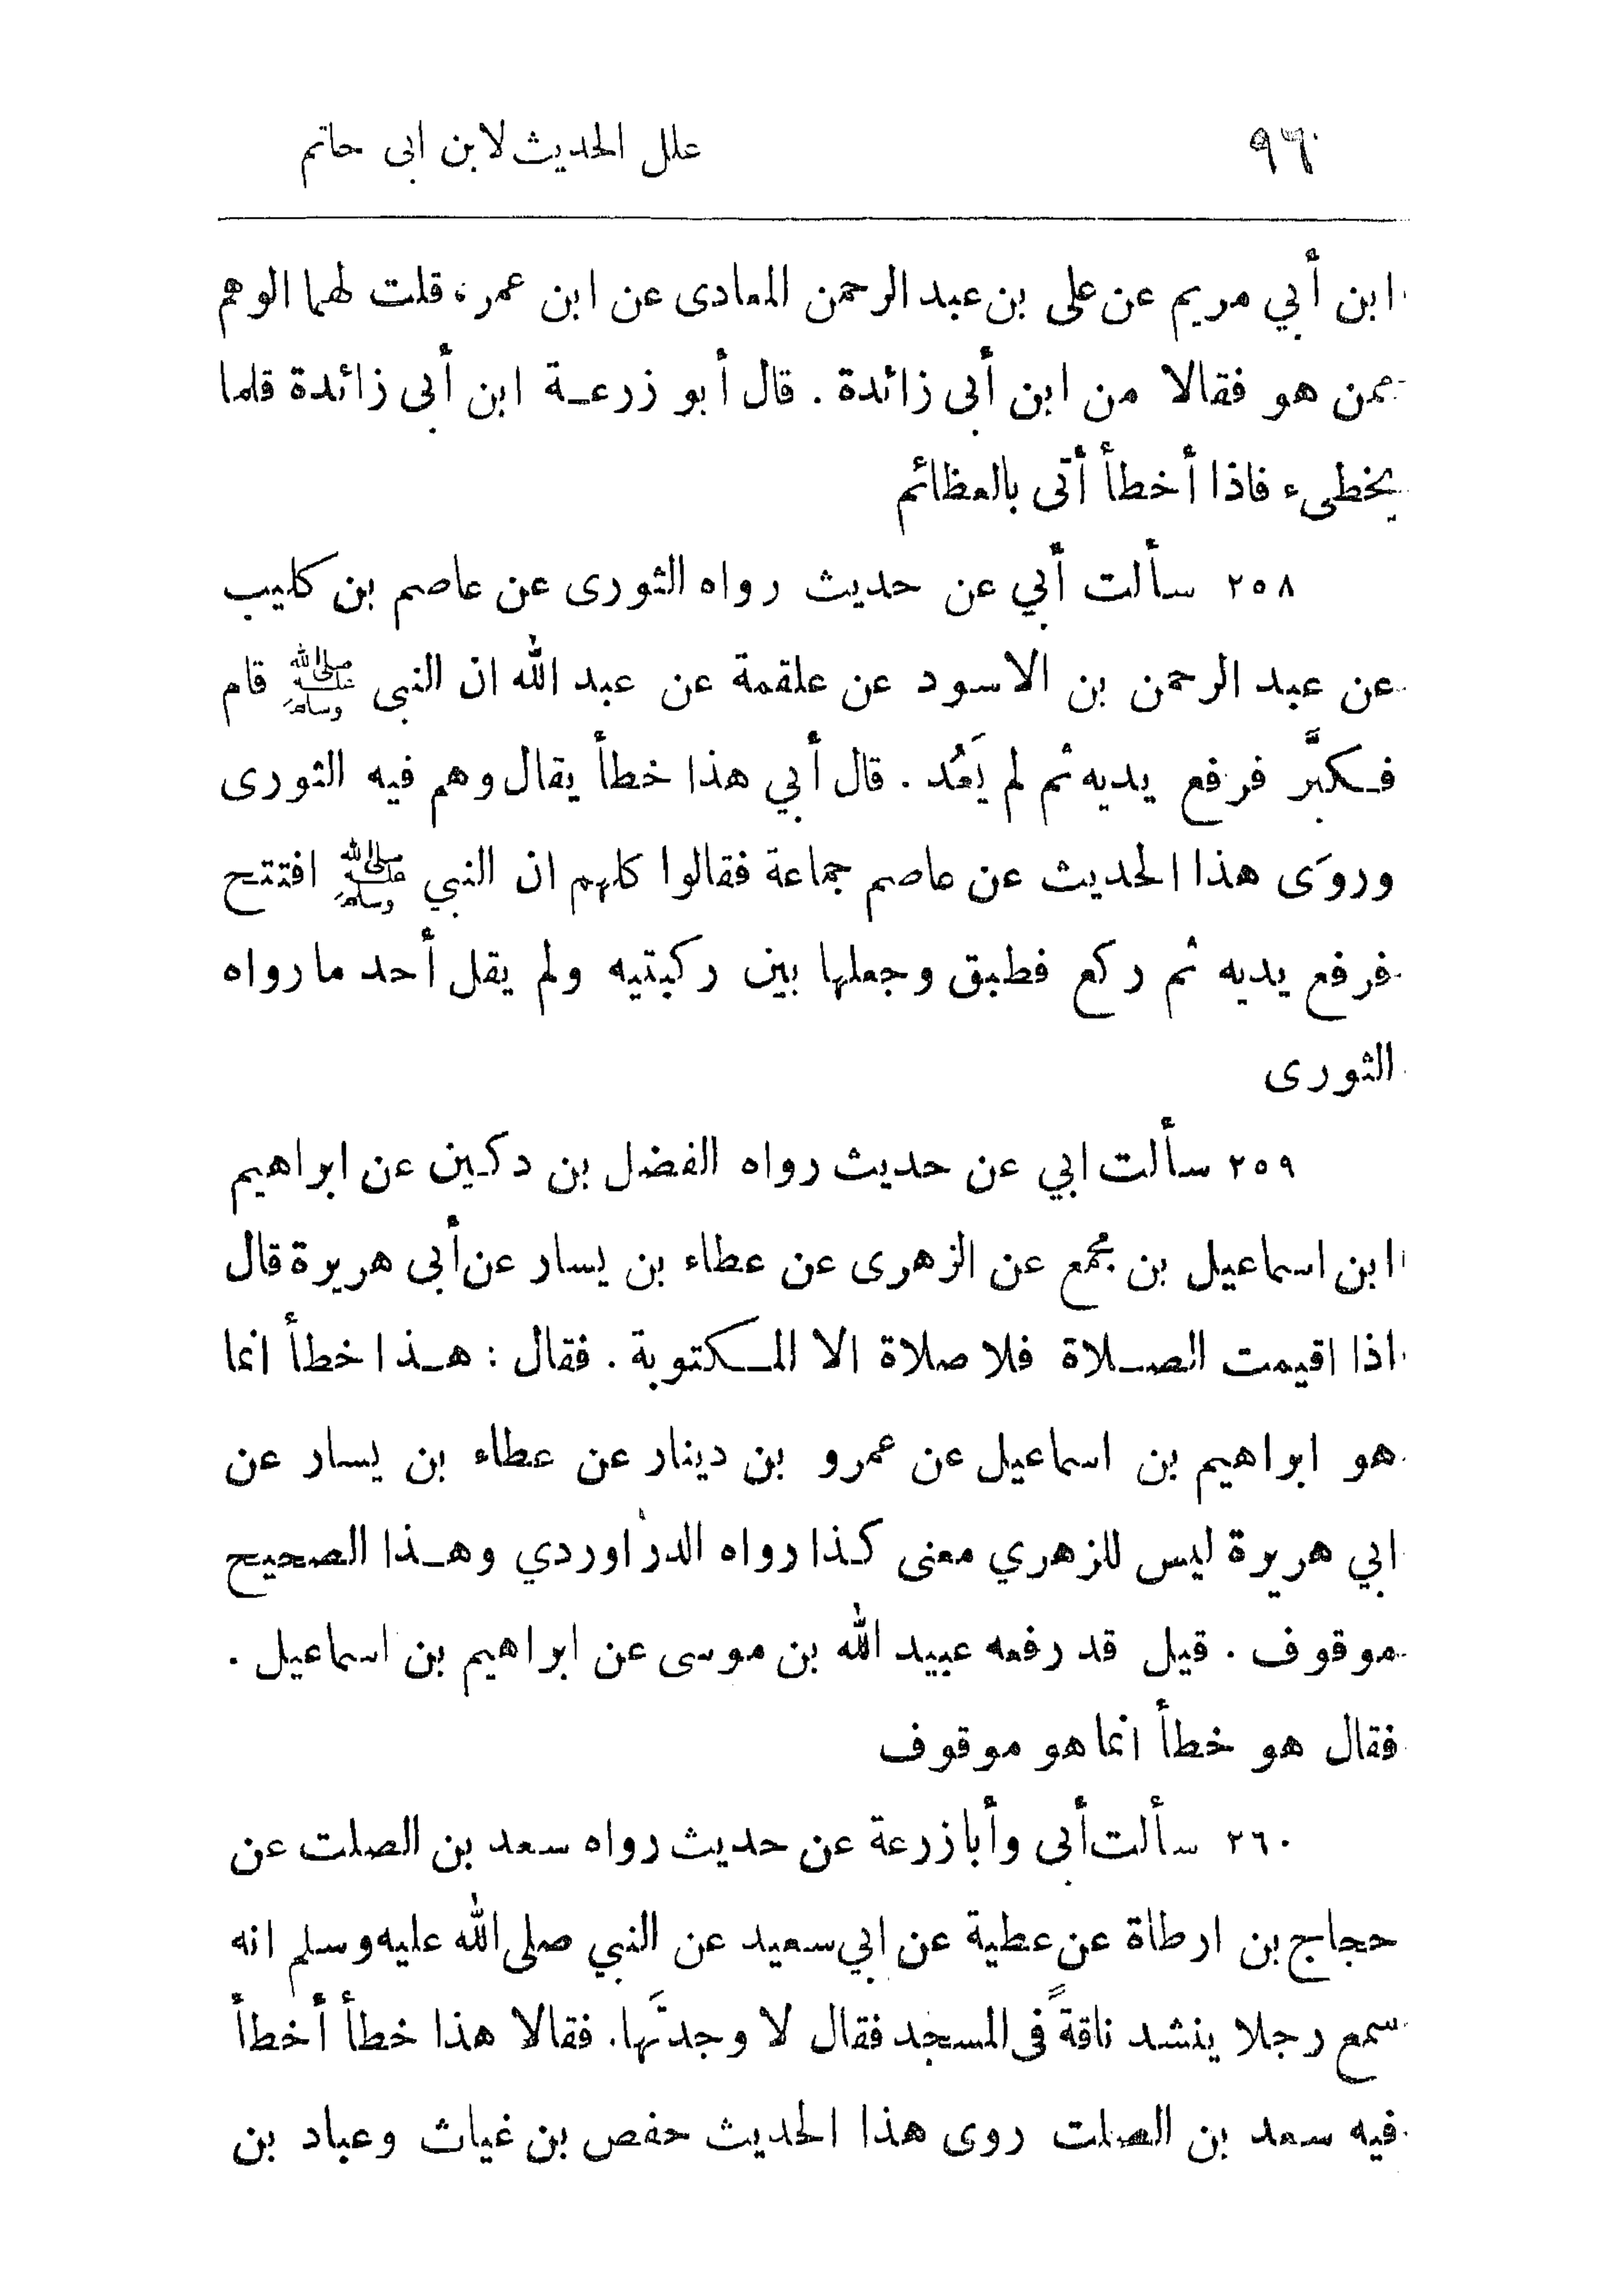 ٩٦ علل الحديث لابن ابى حاتم
ابن أبي مريم عن على بن عبد الرحمن المعادى عن ابن عمر، قلت لهما الوهم
ممن هو فقالا من ابن أبى زائدة . قال أبو زرعة ابن أبى زائدة قلما
يخطىء فاذا أخطأ أتى بالعظائم
٢٥٨ سألت أبي عن حديث رواه الثورى عن عاصم بن كليب
عن عبد الرحمن بن الاسود عن علقمة عن عبد الله ان النبى ﷺ قام
فكبَّر فرفع يديه ثم لم يَعُد . قال أبي هذا خطأ يقال وهم فيه الثورى
وروَى هذا الحديث عن عاصم جماعة فقالوا كلهم ان النبي ﷺ افتتح
فرفع يديه ثم ركع فطبق وجعلها بين ركبتيه ولم يقل أحد ما رواه
الثورى
٢٥٩ سألت ابي عن حديث رواه الفضل بن دكين عن ابراهيم
ابن اسماعيل بن مجمع عن الزهرى عن عطاء بن يسار عن أبى هريرة قال
اذا اقيمت الصلاة فلا صلاة الا المكتوبة . فقال : هذا خطأ انما
هو ابراهيم بن اسماعيل عن عمرو بن دينار عن عطاء بن يسار عن
ابي هريرة ليس للزهري معنى كذا رواه الدراوردي وهذا الصحيح
موقوف . قيل قد رفعه عبيد الله بن موسى عن ابراهيم بن اسماعيل .
فقال هو خطأ انما هو موقوف
٢٦٠ سألت أبى وأبا زرعة عن حديث رواه سعد بن الصلت عن
حجاج بن ارطاة عن عطية عن ابي سعيد عن النبي صلى الله عليه وسلم انه
سمع رجلا ينشد ناقةً فى المسجد فقال لا وجدتَها. فقالا هذا خطأ أخطأ
فيه سعد بن الصلت روى هذا الحديث حفص بن غياث وعباد بن